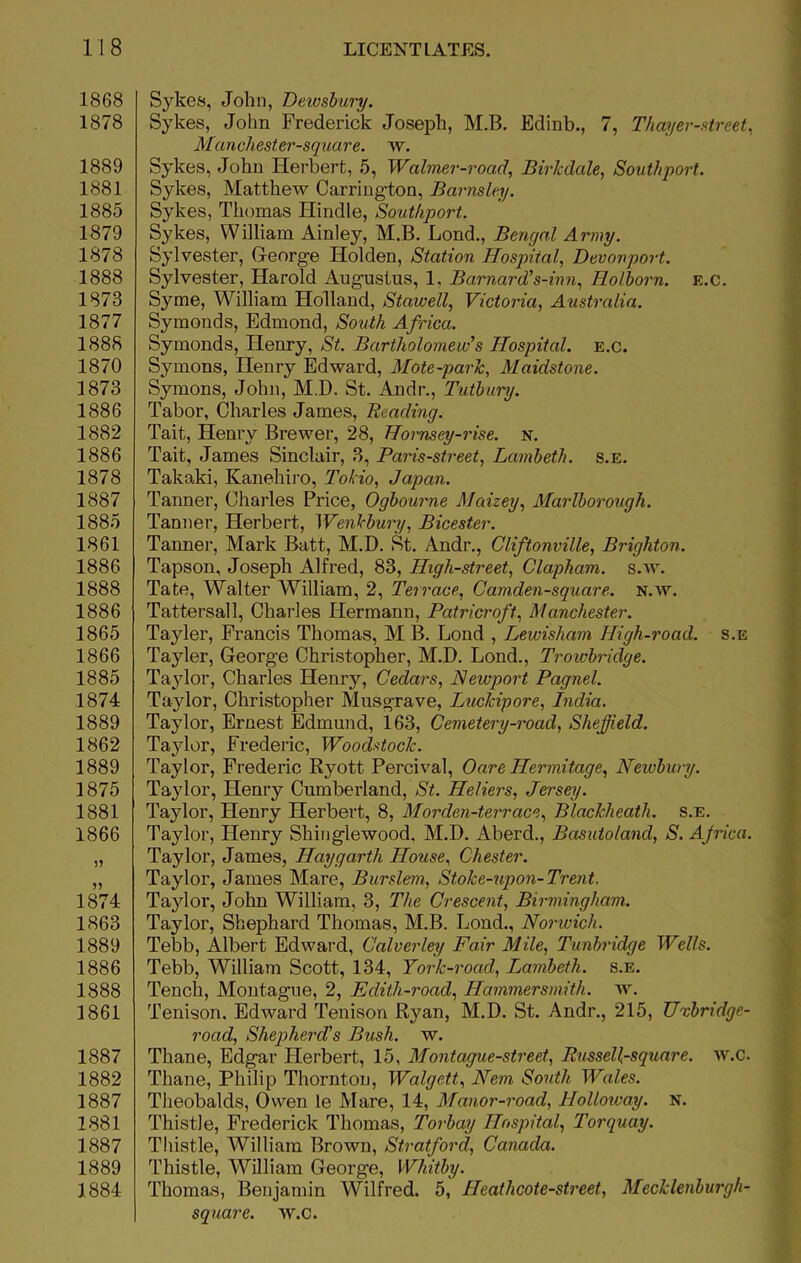 118 LICENTIATES.
1868 Sykes, John, Dewsbury.
1878 Sykes, John Frederick Joseph, M.B. Edinb., 7, Thayer-street,
Manchester-square. w.
1889 Sykes, John Herbert, 5, Walmer-road, Birkdale, Southport.
1881 Sykes, Matthew Carrington, Barnsley.
1885 Sykes, Thomas Hindle, Southport.
1879 Sykes, William Ainley, M.B. Lond., Bengal Army.
1878 Sylvester, George Holden, Station Hospital, Devonport.
1888 Sylvester, Harold Augustus, 1. Barnard's-inn, Holborn. E.C.
1873 Syme, William Holland, Stawell, Victoria, Australia.
1877 Symonds, Edmond, South Africa.
1888 Symonds, Henry, St. Bartholomew's Hospital. E.C.
1870 Symons, Henry Edward, Mote-park, Maidstone.
1873 Symons, John, M.D. St. Andr., Tutbury.
1886 Tabor, Charles James, Reading.
1882 Tait, Henry Brewer, 28, Hornsey-rise. N.
1886 Tait, James Sinclair, 3, Paris-street, Lambeth. S.E.
1878 Takaki, Kanehiro, Tokio, Japan.
1887 Tanner, Charles Price, Ogbourne Maizey, Marlborough.
1885 Tanner, Herbert, Wenkbury, Bicester.
1861 Tanner, Mark Batt, M.D. St. Andr., Cliftonville, Brighton.
1886 Tapson, Joseph Alfred, 83, High-street, Clapham. S.W.
1888 Tate, Walter William, 2, Terrace, Camden-square. N.W.
1886 Tattersall, Charles Hermann, Patricroft, Manchester.
1865 Tayler, Francis Thomas, M B. Lond , Lewisham High-road. S.E
1866 Tayler, George Christopher, M.D. Lond., Trowbridge.
1885 Taylor, Charles Henry, Cedars, Newport Pagnel.
1874 Taylor, Christopher Musgrave, Luckipore, India.
1889 Taylor, Ernest Edmund, 163, Cemetery-road, Sheffield.
1862 Taylor, Frederic, Woodstock.
1889 Taylor, Frederic Ryott Percival, Oare Hermitage, Newbury.
1875 Taylor, Henry Cumberland, St. Heliers, Jersey.
1881 Taylor, Henry Herbert, 8, Morden-terrace, Blackheath. S.E.
1866 Taylor, Henry Shinglewood, M.D. Aberd., Basutoland, S. Africa.
„ Taylor, James, Haygarth House, Chester.
„ Taylor, James Mare, Burslem, Stoke-upon-Trent.
1874 Taylor, John William, 3, The Crescent, Birmingham.
1863 Taylor, Shephard Thomas, M.B. Lond., Norwich.
1889 Tebb, Albert Edward, Calverley Fair Mile, Tunbridge Wells.
1886 Tebb, William Scott, 134, York-road, Lambeth. S.E.
1888 Tench, Montague, 2, Edith-road, Hammersmith. W.
1861 Tenison, Edward Tenison Ryan, M.D. St. Andr., 215, Uxbridge-
road, Shepherd's Bush. w.
1887 Thane, Edgar Herbert, 15, Montague-street, Russell-square. W.C.
1882 Thane, Philip Thornton, Walgett, Nem South Wales.
1887 Theobalds, Owen le Mare, 14, Manor-road, Holloway. N.
1881 Thistle, Frederick Thomas, Torbay Hospital, Torquay.
1887 Thistle, William Brown, Stratford, Canada.
1889 Thistle, William George, Whitby.
1884 Thomas, Benjamin Wilfred. 5, Heathcote-street, Mecklenburgh-
square. W.C.